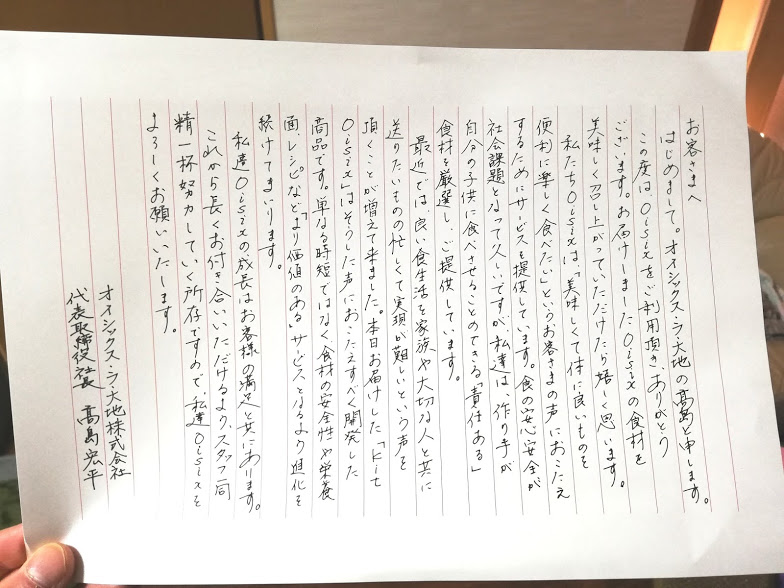 お客さまへ
はじめまして。オイシックス・ラ・大地の髙島と申します。
この度は、Oisixをご利用頂き、ありがとう
ございます。お届けしましたOisixの食材を
美味しく召し上がっていただけたら嬉しく思います。
私たちOisixは、「美味しくて体に良いものを
便利に楽しく食べたい」というお客さまの声におこたえ
するためにサービスを提供しています。食の安心・安全が
社会課題となって久しいですが、私達は、作り手が
自分の子供に食べさせることのできる「責任ある」
食材を厳選し、ご提供しています。
最近では、良い食生活を家族や大切な人と共に
送りたいものの忙しくて実現が難しいという声を
頂くことが増えて来ました。本日お届けした「Kit
Oisix」はそうした声におこたえすべく開発した
商品です。単なる時短ではなく、食材の安全性や栄養
面、レシピなど、より価値のある」サービスとなるよう進化を
続けてまいります。
私達Oisixの成長はお客様の満足と共にあります。
これから長くお付き合いいただけるよう、スタッフ一同
精一杯努力していく所存ですので、私達Oisixを
よろしくお願いいたします。
オイシックス・ラ・大地株式会社
代表取締役社長 髙島宏平